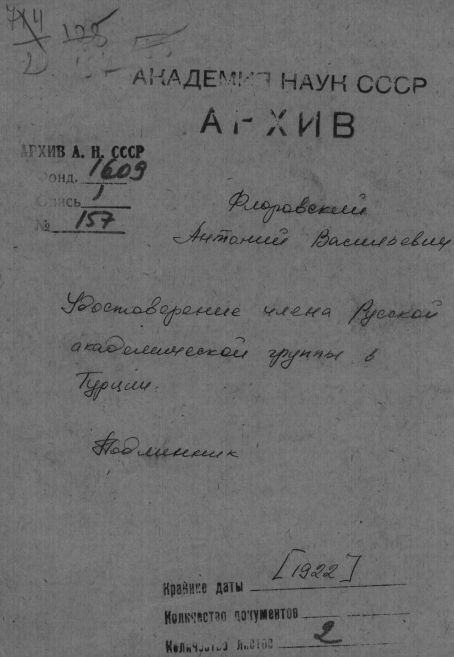 АКАДЕМИЯ НАУК СССР
АРХИВ
АРХИВ А. Н. СССР
Фонд. 1609
Опись 1
№ 157
Флоровский
Антоний Васильевич
Удостоверение члена Русской
академической группы в
Турции.
Подлинник
Крайние даты [1922]
Количество документов
Количество листов 2